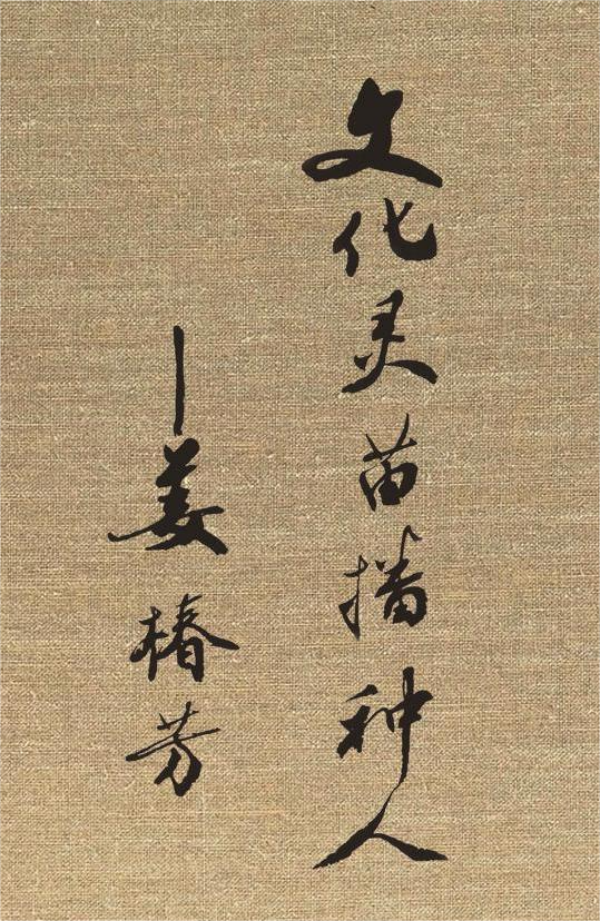 文化灵苗播种人
—姜椿芳